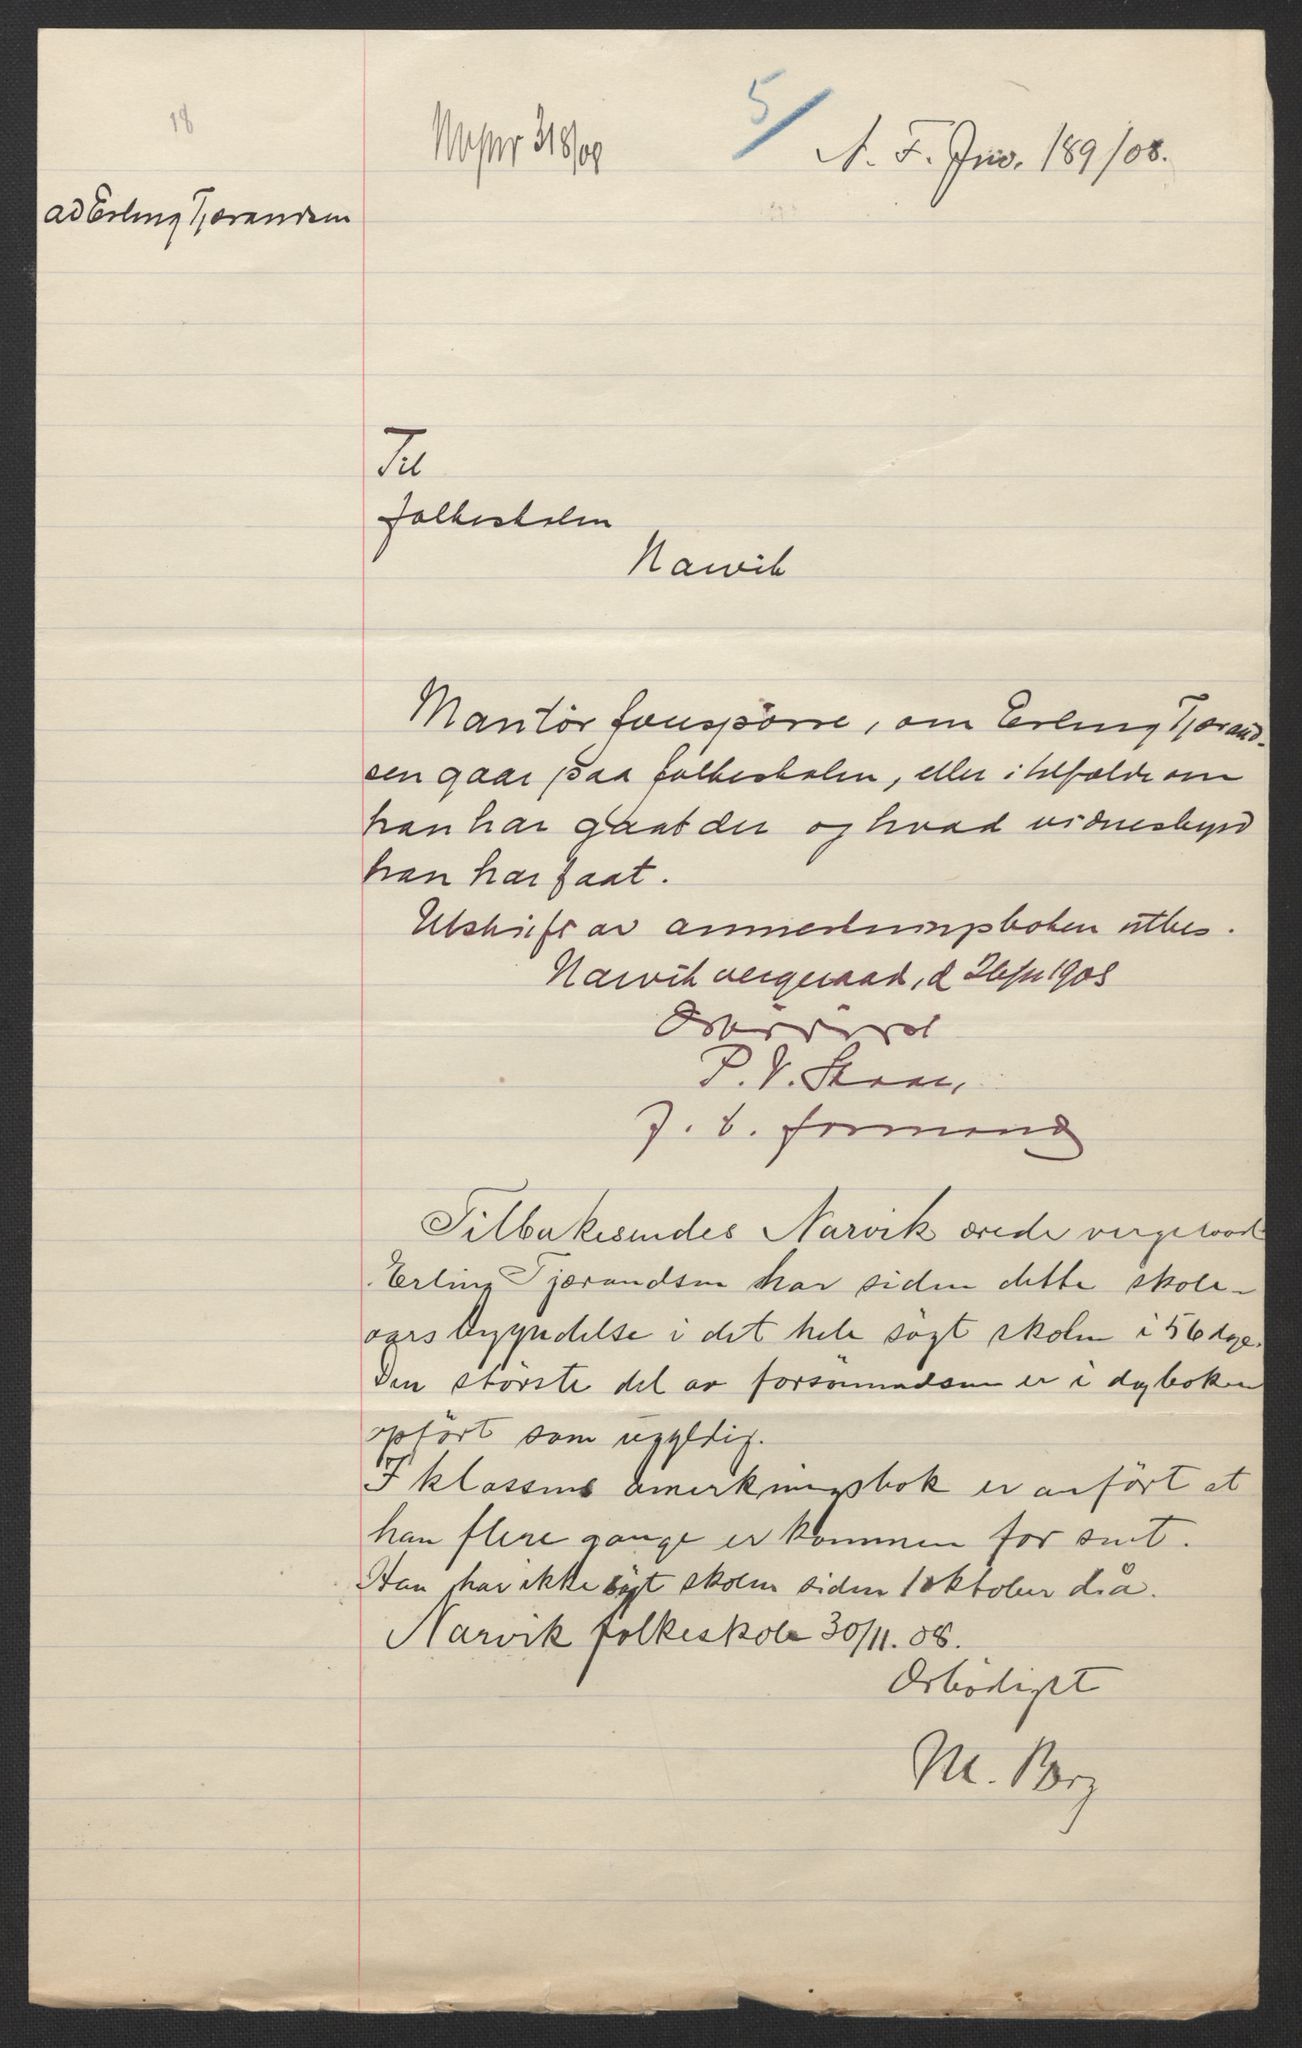 18
318/08
5/
N. F. Jno. 189/08.
ad Erling Tjærandsen
Til
folkeskolen
Narvik
Man tør forespørre, om Erling Tjærand-
sen gaar paa folkeskolen, eller i tilfælde om
han har gaat der og hvad vidnesbyrd
han har faat.
Utskrift av anmerkningsboken utbes.
Narvik vergeraad, d 26/11 1908
Ærbødigst
P. V.
f. t. formand
Tilbakesendes Narvik ærede vergeraad
Erling Tjærandsen har siden dette skole-
aars begyndelse i det hele søgt skolen i 56 dage.
Den største del av forsømmelsen er i dagboken
opført som ugyldig.
I klassens anmerkningsbok er anført at
han flere gange er kommen for sent.
Han har ikke søgt skolen siden 1 oktober d.å.
Narvik folkeskole 30/11. 08.
Ærbødigst
M. Berg